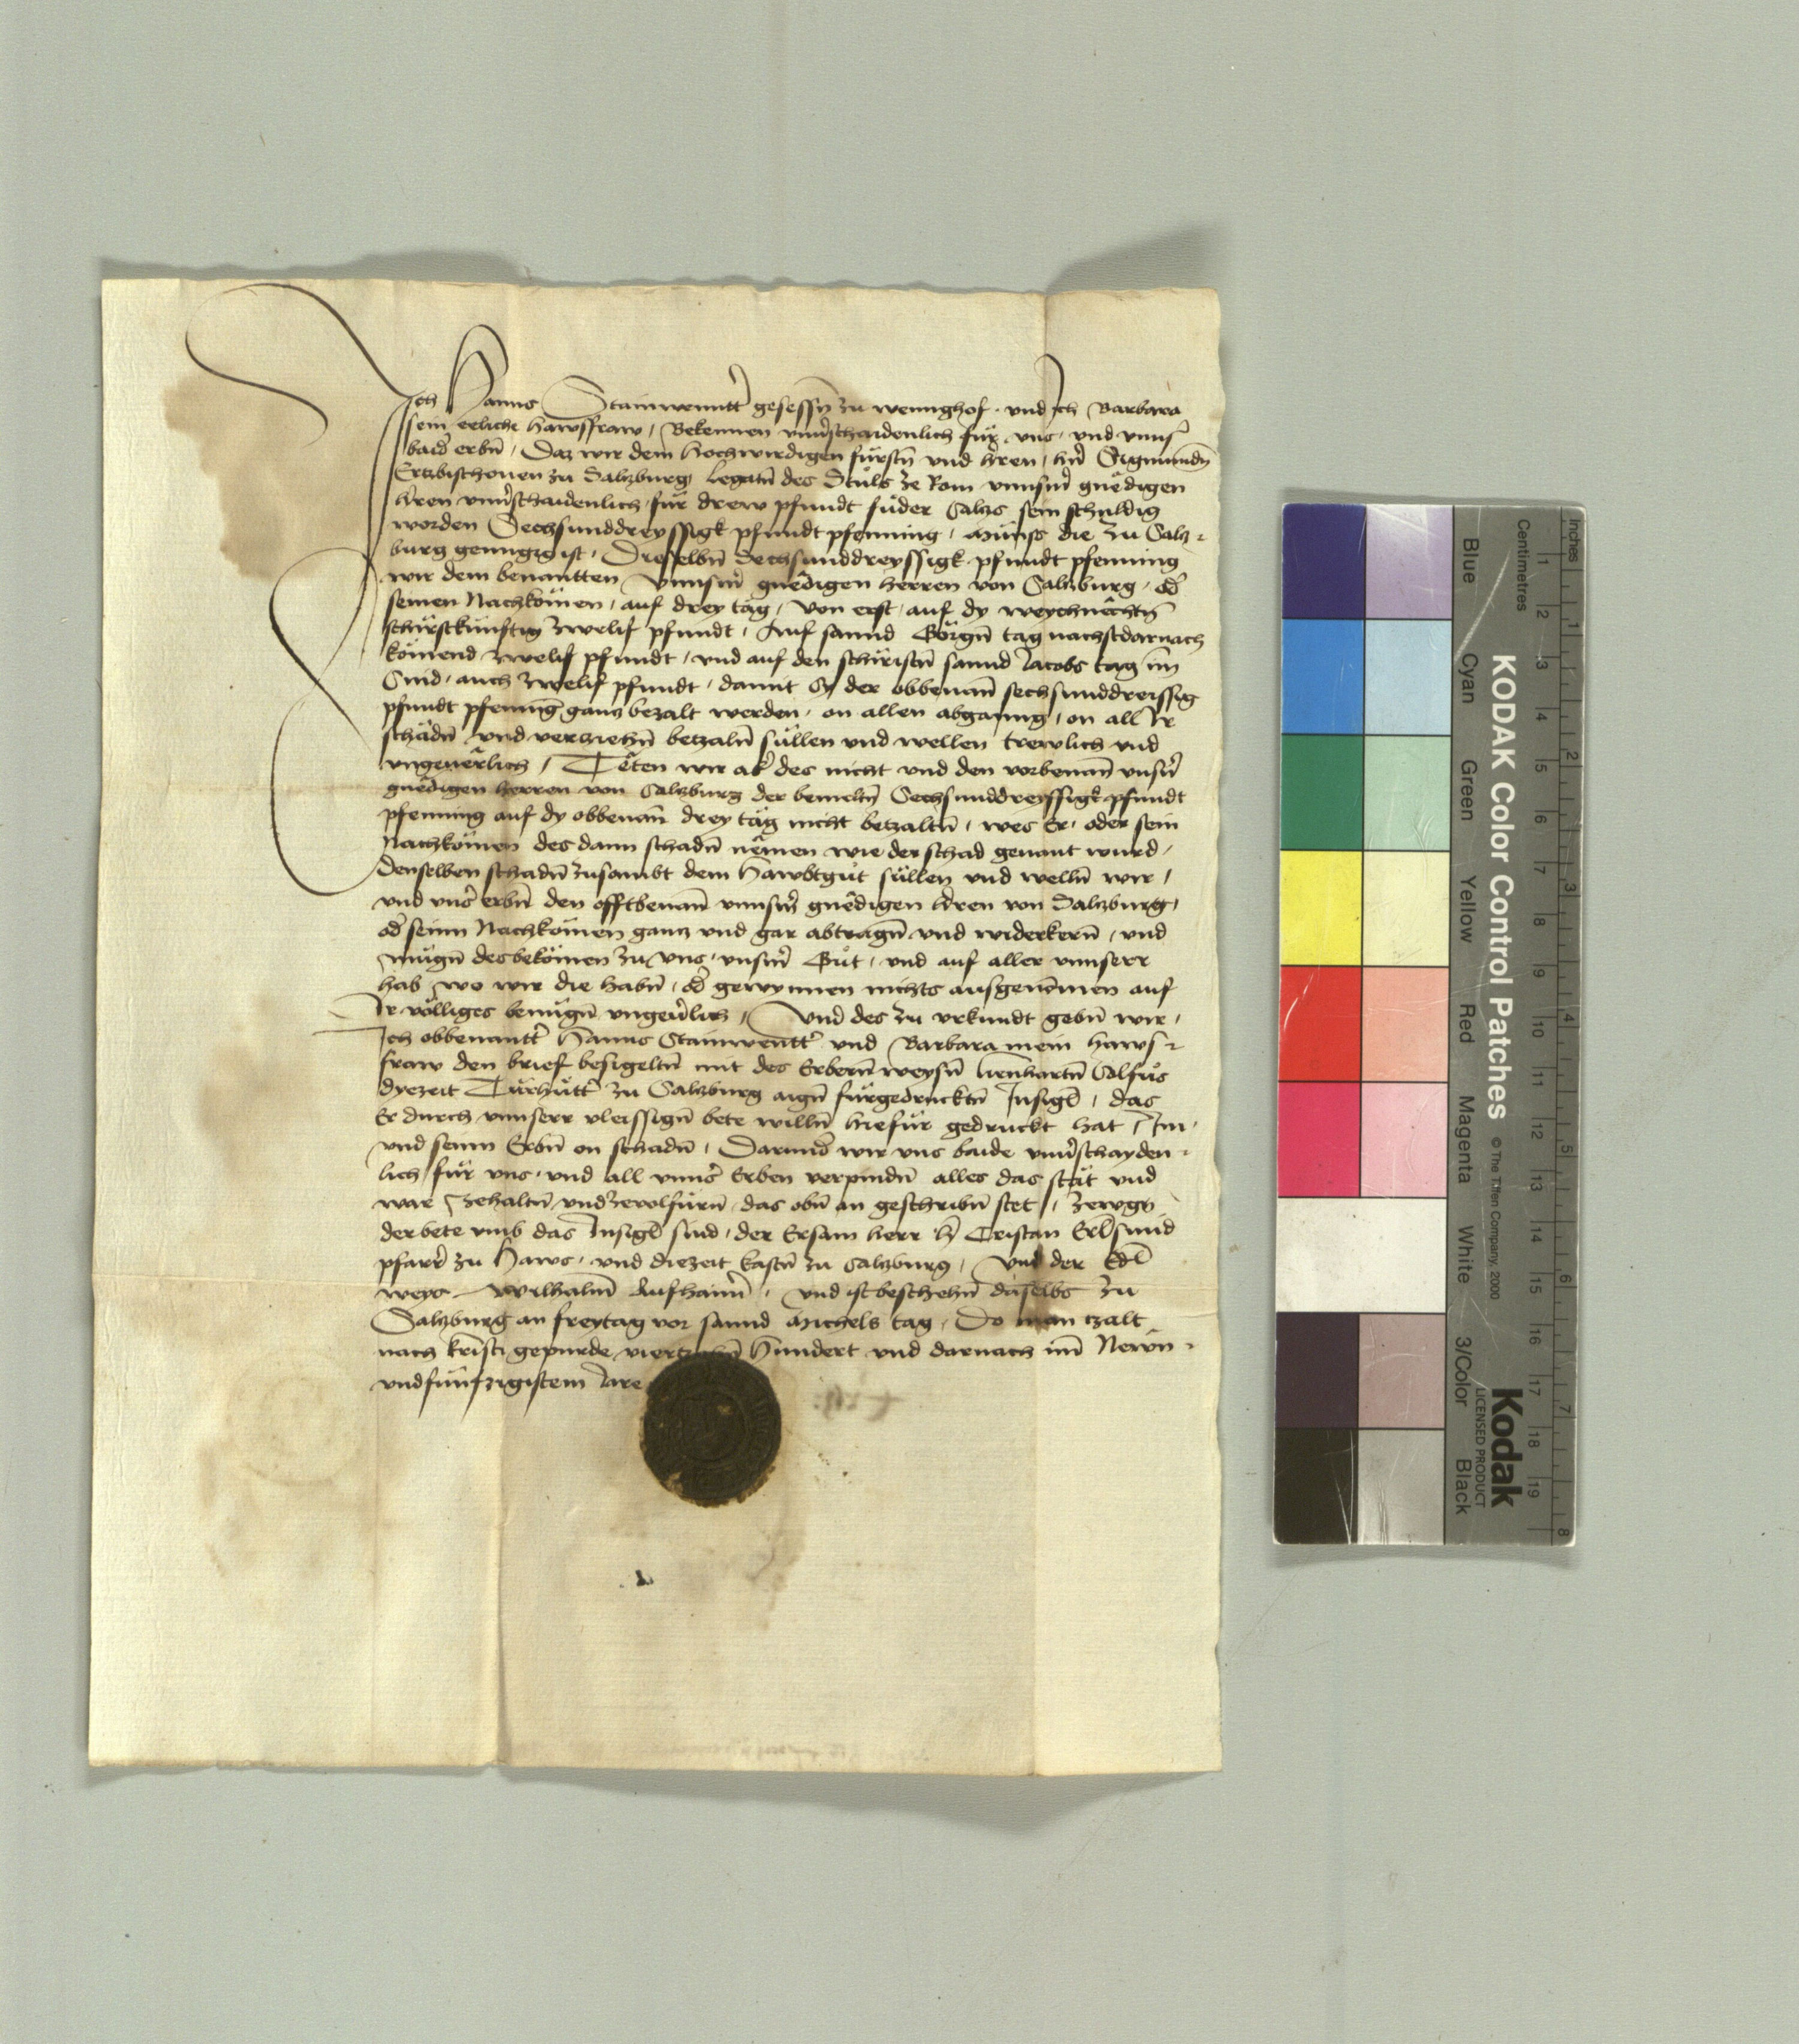 Ich Hanns Stainwenntt̉ gesessn̄ zu wennghof · vnd Ich Barbara
sein eeliche hawsfraw / Bekennen vnuerschaidenlich für vns · vnd vnns̉
baid̉ erbn̄ / Daz wir dem hochwirdigen fürstn̄ vnd hr̄en / hn̄ Sigmundn̄
Ertzbischouen zu Salzburg legatn̄ des Stuls ze Rom vnnsm̄ gnedigen
hr̄en vnuerschaidenlich für drew pfundt fuder Salcz sein schuldig
worden Sechsunddreyssigk pfundt pfenning / Münss die zu Salcz=
burg genngig ist / Dieselbn̄ Sechsunddreyssigk pfundt pfenning
wir dem benantten vnnsm̄ gnedigen herren von Salzburg / od̉
seinen Nachkömen / auf drey täg / von erst / auf dy weychnechtn̄
schirstkünftig zwelif pfundt / Auf sannd Görgn̄ tag nachstdarnach
kömend zwelif pfundt / vnd auf den schiristn̄ sannd Jacobs tag im
Snid / auch zwelif pfundt / damit Sy der obbenan̄ sechsunddreissig
pfundt pfening ganz bezalt werden / on allen abganng / on all Ir
schädn̄ vnd verziehn̄ betzaln̄ süllen vnd wellen trewlich vnd
vngeuerlich / Teten wir ab̉ des nicht vnd den vorbenan̄ vnsn̄
gnedigen herren von Salzburg der bemeltn̄ Sechsunddreyssigk pfundt
pfenning auf dy obbenan̄ drey täg nicht betzaltn̄ / wes Er / oder sein
Nachkömen des dann schadn̄ nemen wie der schad genant wurd /
denselben schadn̄ zusambt dem hawbtgut süllen vnd welln̄ wir /
vnd vns̉ erbn̄ den offtbenan̄ vnnsm̄ gnedigen hr̄en von Salzburg /
od̉ seinn Nachkömen ganz vnd gar abtragn̄ vnd widerkern̄ / vnd
mügn̄ des bekömen zu vns / vnsm̄ Gut / vnd auf aller vnnserr
hab / wo wir die habn̄ / od̉ gewynnen nichts ausgenömen auf
Ir völliges benügn̄ vngeuerlich / Vnd des zu vrkundt gebn̄ wir /
Ich obbenantt̉ Hanns Stainwenntt̉ vnd Barbara mein haws=
fraw den brief besigeltn̄ mit des Erbern̄ weysn̄ lienhartn̄ Salfus
dyezeit Türhütt̉ zu Salzburg aign̄ fürgedrucktn̄ Insigl / das
Er durch vnnserr vleissign̄ bete willn̄ hiefür gedruckt hat / Im /
vnd seinn Erbn̄ on schadn̄ / Darund̉ wir vns baide vnuerschayden=
lich für vns / vnd all vnns̉ Erben verpindn̄ alles das stät vnd
war zehaltn̄ vnd zeuolfürn̄ das obn̄ an geschribn̄ stet / zewgn̄
der bete vmb das Insigl sind / der Ersam herr h̄ Cristan Erlsmid
pfarr̉ zu Haws / vnd diezeit kastn̄ zu Salzburg / Vnd der Edl
weys Wilhalm Aufhaim̉ / vnd ist beschehn̄ daselbs zu
Salzburg an freytag vor sannd Michels tag / Do man tzalt
nach kristi gepurde viertzehn̄ hundert vnd darnach im Newn=
vndfünfzigistem Jare
KODAK Color Control Patches
© The Tiffen Company, 2000
Kodak
LICENSED PRODUCT
Inches
1 2 3 4 5 6 7 8
Centimetres
1 2 3 4 5 6 7 8 9 10 11 12 13 14 15 16 17 18 19
Blue
Cyan
Green
Yellow
Red
Magenta
White
3/Color
Black